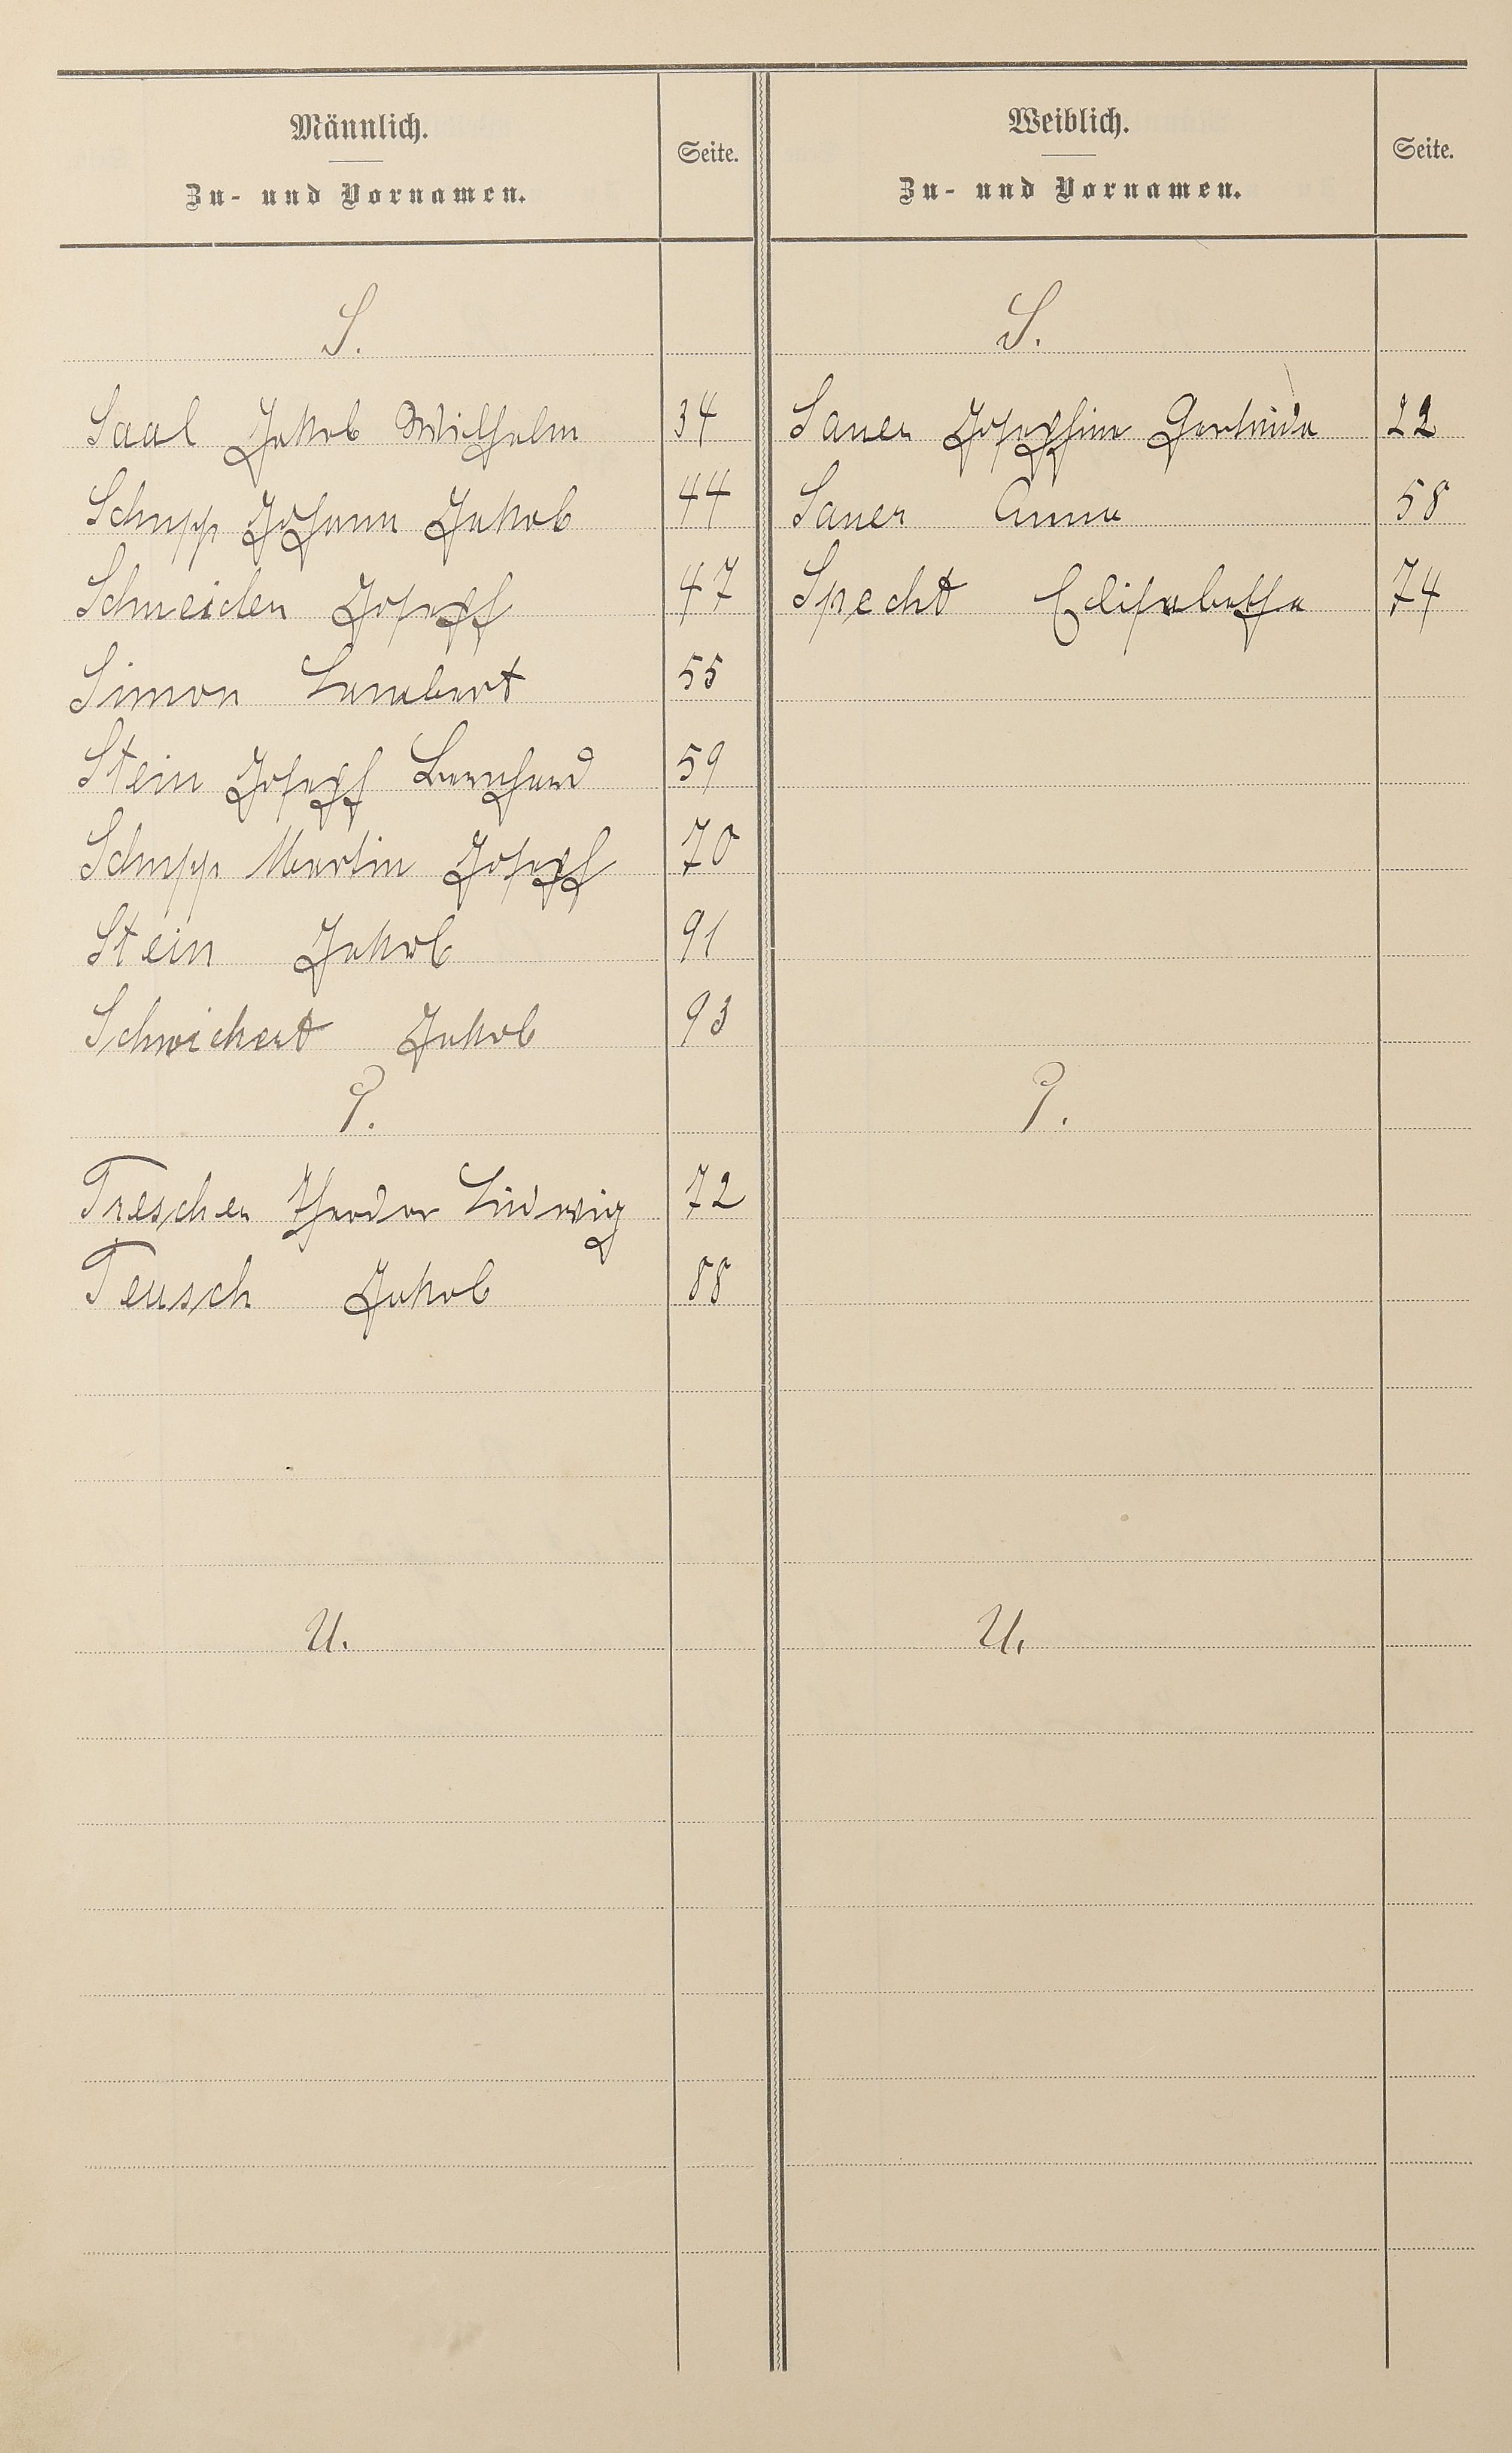 Männlich.
Zu- und Vornamen.
Seite.
Weiblich.
Zu- und Vornamen.
Seite.
S.
S.
Saal Jakob Wilhelm 34
Sauer Josephine Gertrude 22
Schupp Johann Jakob 44
Sauer Anna 58
Schneider Joseph 47
Specht Elisabetha 74
Simon Lambert 55
Stein Joseph Bernhard 59
Schupp Martin Joseph 70
Stein Jakob 91
Schwickert Jakob 93
T.
T.
Trescher Theodor Ludwig 72
Teusch Jakob 88
U.
U.